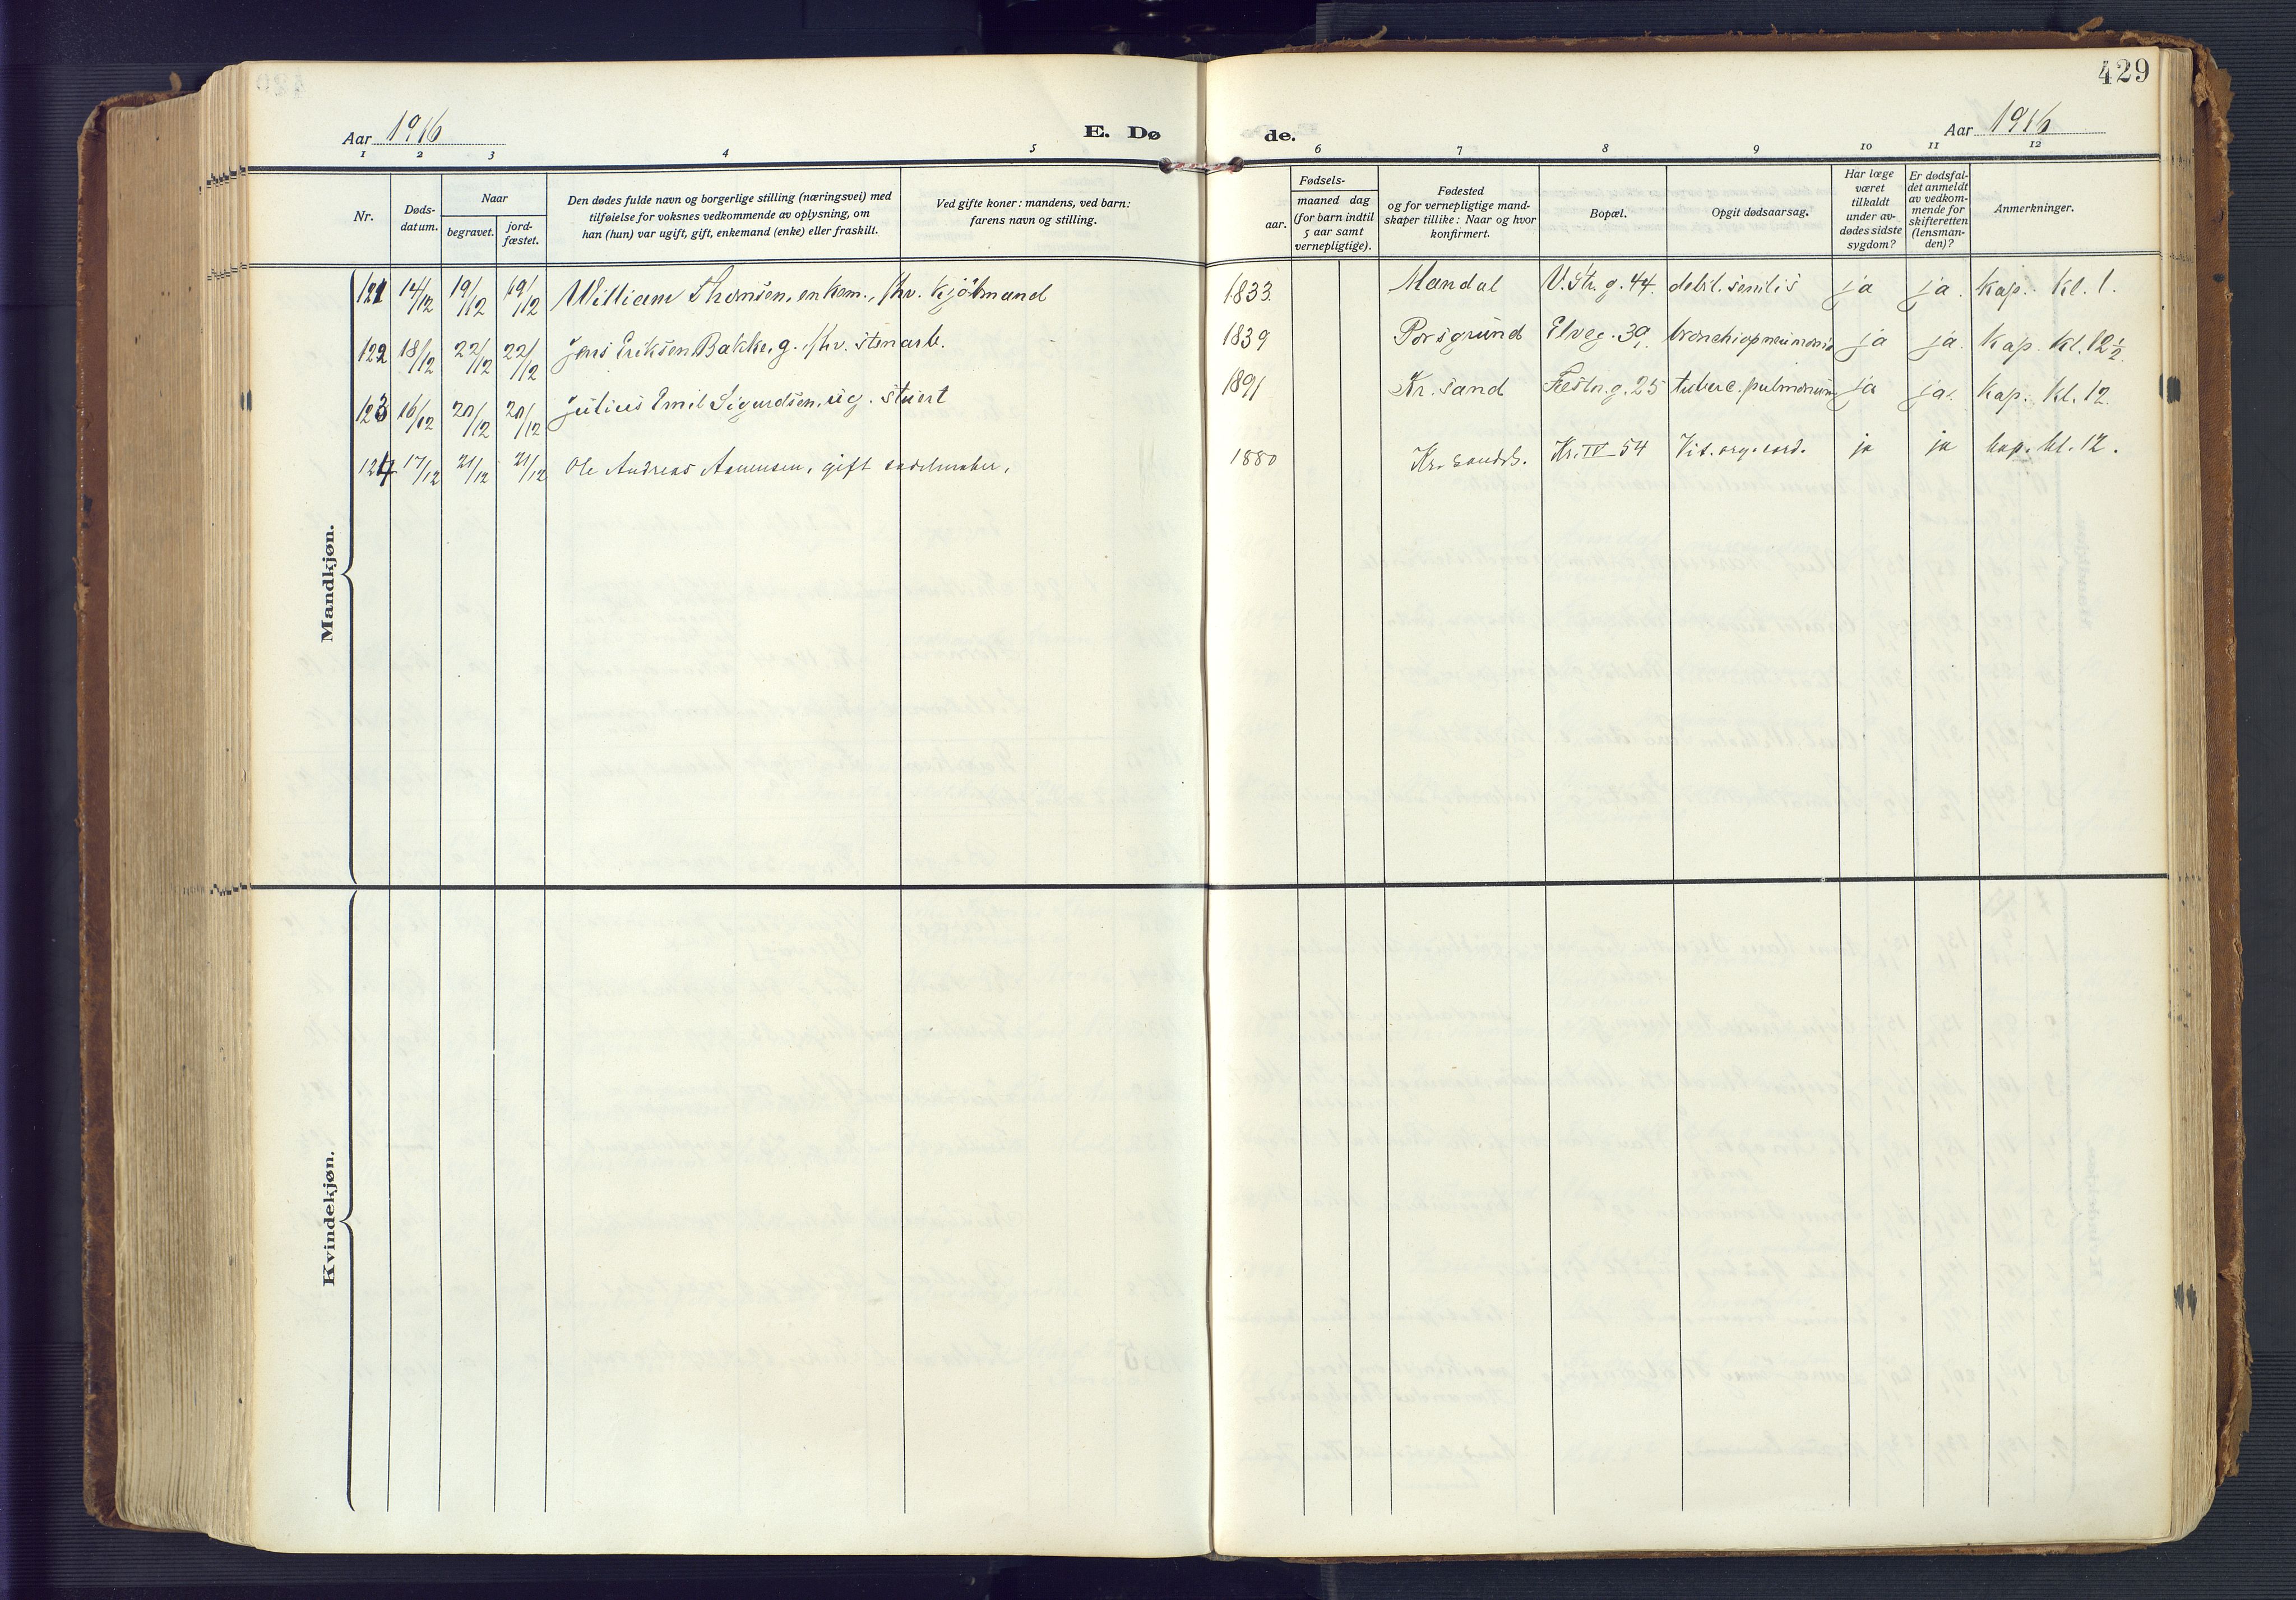 429
Aar 1916
E. Dø
de.
Aar 1916
1 2 3 4 5 6 7 8 9 10 11 12
Nr.
Døds-
datum.
Naar
begravet.
jord-
fæstet.
Den dødes fulde navn og borgerlige stilling (næringsvei) med
tilføielse for voksnes vedkommende av oplysning, om
han (hun) var ugift, gift, enkemand (enke) eller fraskilt.
Ved gifte koner: mandens, ved barn:
farens navn og stilling.
Fødsels-
aar.
maaned dag
(for barn indtil
5 aar samt
vernepligtige).
Fødested
og for vernepligtige mand-
skaper tillike: Naar og hvor
konfirmert.
Bopæl.
Opgit dødsaarsag.
Har læge
været
tilkaldt
under av-
dødes sidste
sygdom?
Er dødsfal-
det anmeldt
av vedkom-
mende for
skifteretten
(lensman-
den)?
Anmerkninger.
Mandkjøn.
121 14/12 19/12 19/12 William Thomsen, enkem., fhv. Kjöbmand 1833. Mandal V. Str. g. 44. debil. senilis ja ja. Kap. Kl. 1.
122 18/12 22/12 22/12 Jens Eriksen Bakke, g. fhv. stenarb. 1839 Porsgrund Elveg. 39. bronchiopneumonia ja ja. Kap. Kl. 12½
123 16/12 20/12 20/12 Julius Emil Sigurdsen, ug. stuert 1891 Kr. sand Festn. g. 25 tuberc. pulmonum ja ja. Kap. Kl. 12.
124 17/12 21/12 21/12 Ole Andreas Aanensen, gift sadelmaker, 1880 Kr. sands. Kr. IV 54 Vit. org. cord. ja ja kap. kl. 12.
Kvindekjøn.